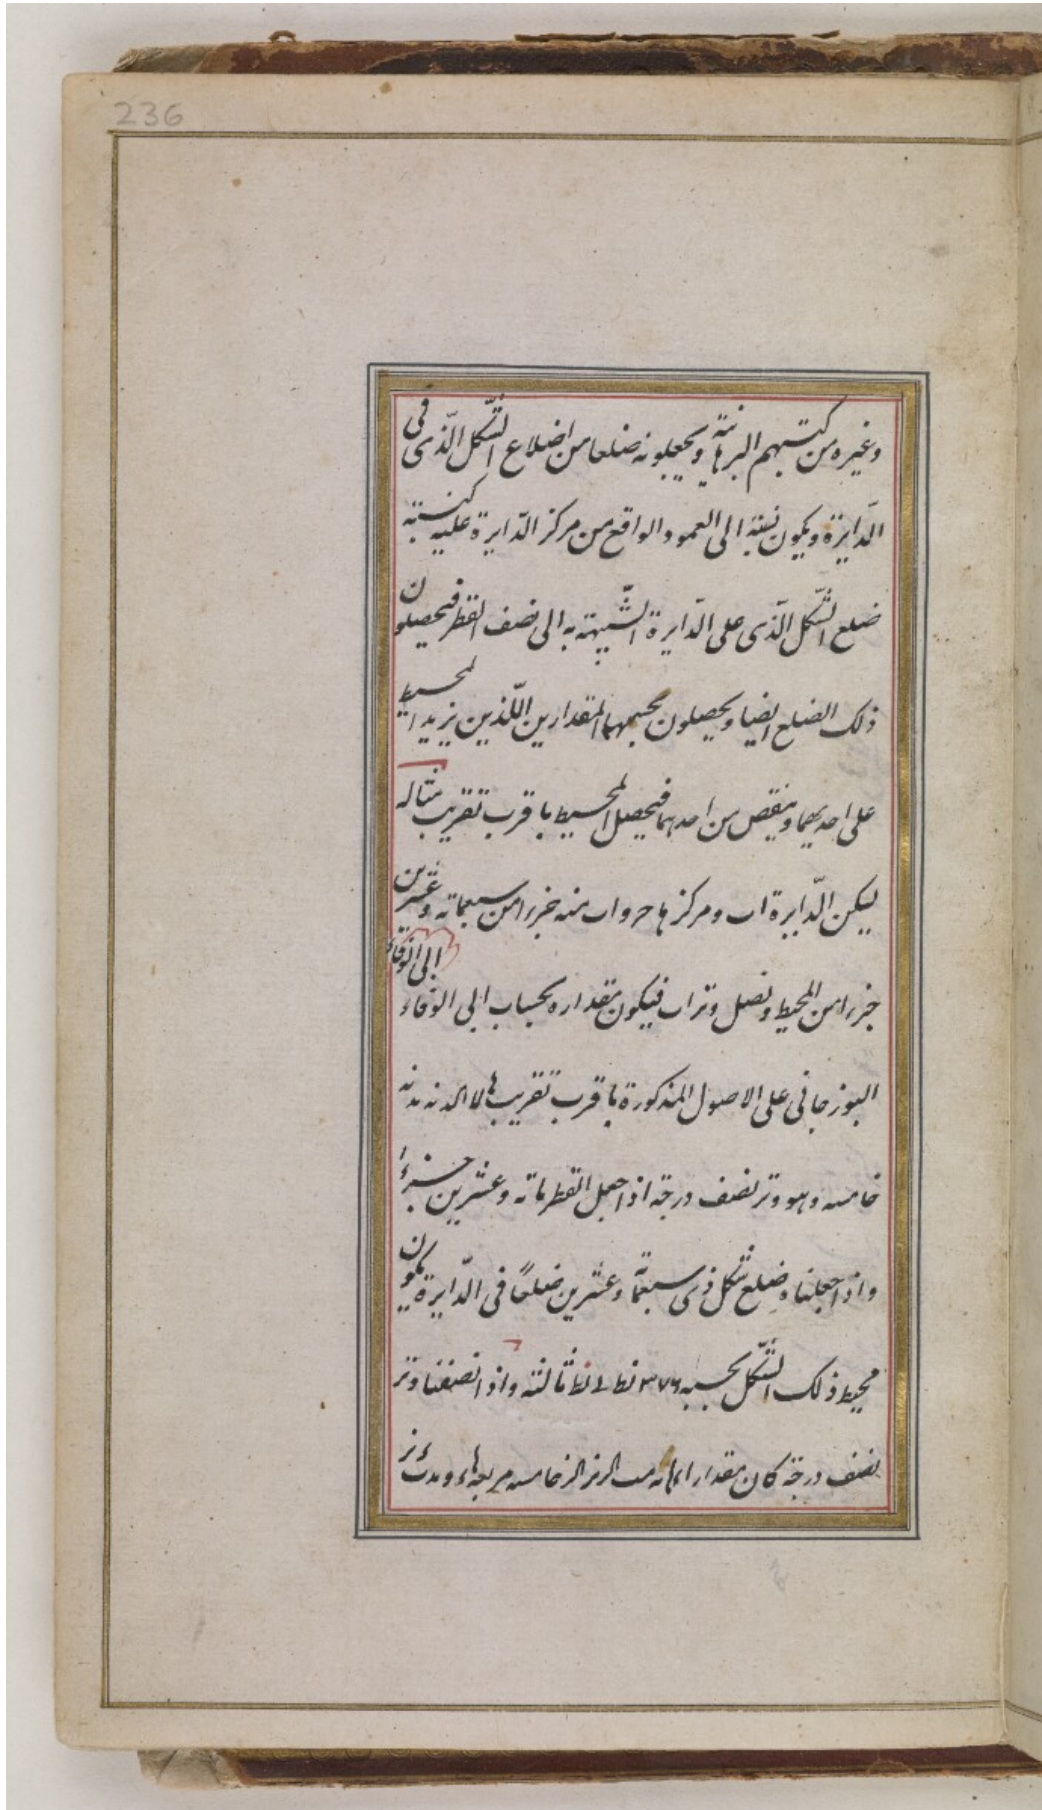 236
وغيره من كتبهم البرهانية ويجعلونه ضلعا من اضلاع الشّكل الّذى فى
الدّايرة ويكون نسبته الى العمود الواقع من مركز الدّايرة عليه كنسبة
ضلع الشّكل الّذى على الدّايرة الشّبيهة به الى نصف القطر فيحصلون
ذلك الضلع ايضا ويحصلون بحسبهما المقدارين اللّذين يزيد المحيط
على احديهما وينقص من احدهما فيحصل المحيط باقرب تقريب مثاله
ليكن الدّايرة اب ومركزها ح و اب منه جزءا من سبعمائة وعشرين
الى الوفاء
جزءا من المحيط ونصل وتر اب فيكون مقداره بحساب ابى الوفاء
البوزجانى على الاصول المذكورة باقرب تقريب
خامسه وهو وتر نصف درجة اذا جعل القطر مائة وعشرين جزءا
واذا جعلناه ضلع شكل ذى سبعمائة وعشرين ضلعًا فى الدّايرة يكون
محيط ذلك الشّكل بحسبه ٣٧٦ نط نط ثالثه واذا نصفنا وتر
نصف درجة كان مقدار خامسه مربعها